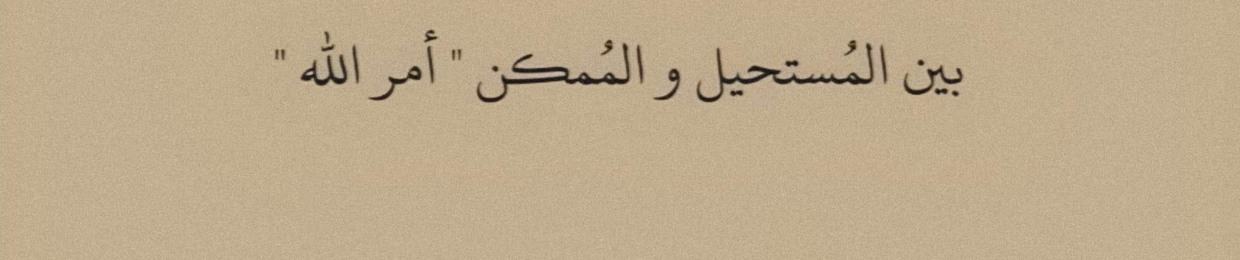 بين المُستحيل و المُمكن " أمر الله "